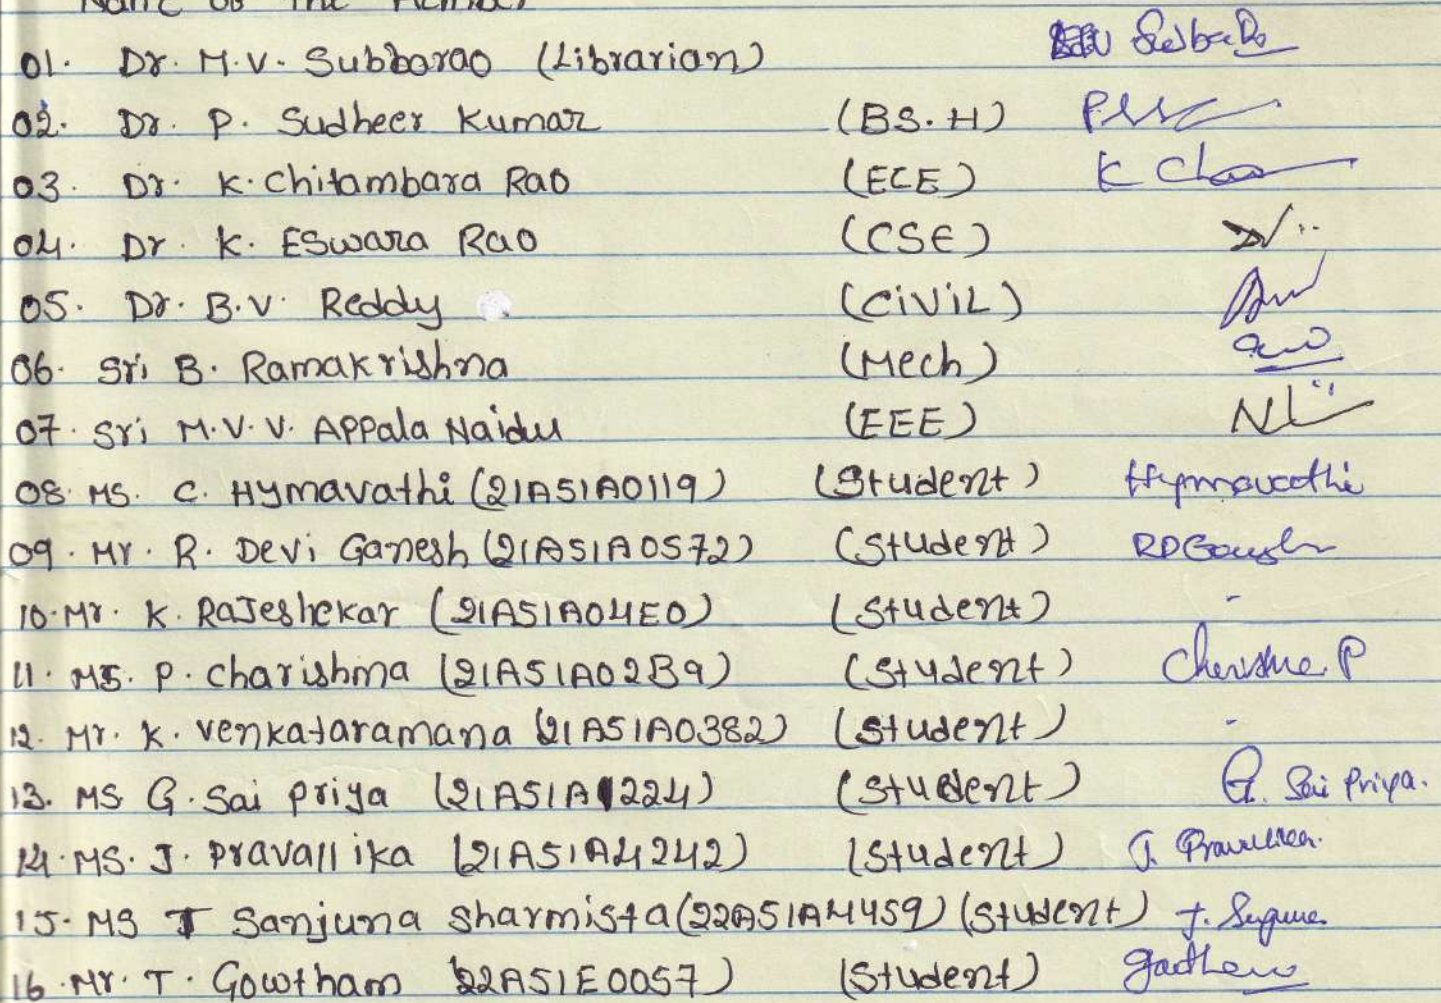 Name of the Member
01. Dr. M.V. Subbarao (Librarian) Subba Ro
02. Dr. P. Sudheer Kumar (BS.H)
03. Dr. K. Chitambara Rao (ECE) K Cha
04. Dr. K. Eswara Rao (CSE)
05. Dr. B.V. Reddy (CiViL)
06. Sri B. Ramakrishna (Mech)
07. Sri M.V.V. Appala Naidu (EEE)
08. Ms. C. Hymavathi (21A51A0119) (Student) Hymavathi
09. Mr. R. Devi Ganesh (21A51A0572) (Student) RDGanesh
10. Mr. K. Rajeshekar (21A51A04E0) (Student) -
11. Ms. P. Charishma (21A51A02B9) (Student) P
12. Mr. K. Venkataramana (21A51A0382) (Student) -
13. Ms G. Sai Priya (21A51A1224) (Student) G. Sai Priya.
14. Ms. J. Pravallika (21A51A4242) (Student) J. Pravallika.
15. Ms T Sanjuna Sharmista (22A51A4459) (Student)
16. Mr. T. Gowtham 22A51E0057) (Student)